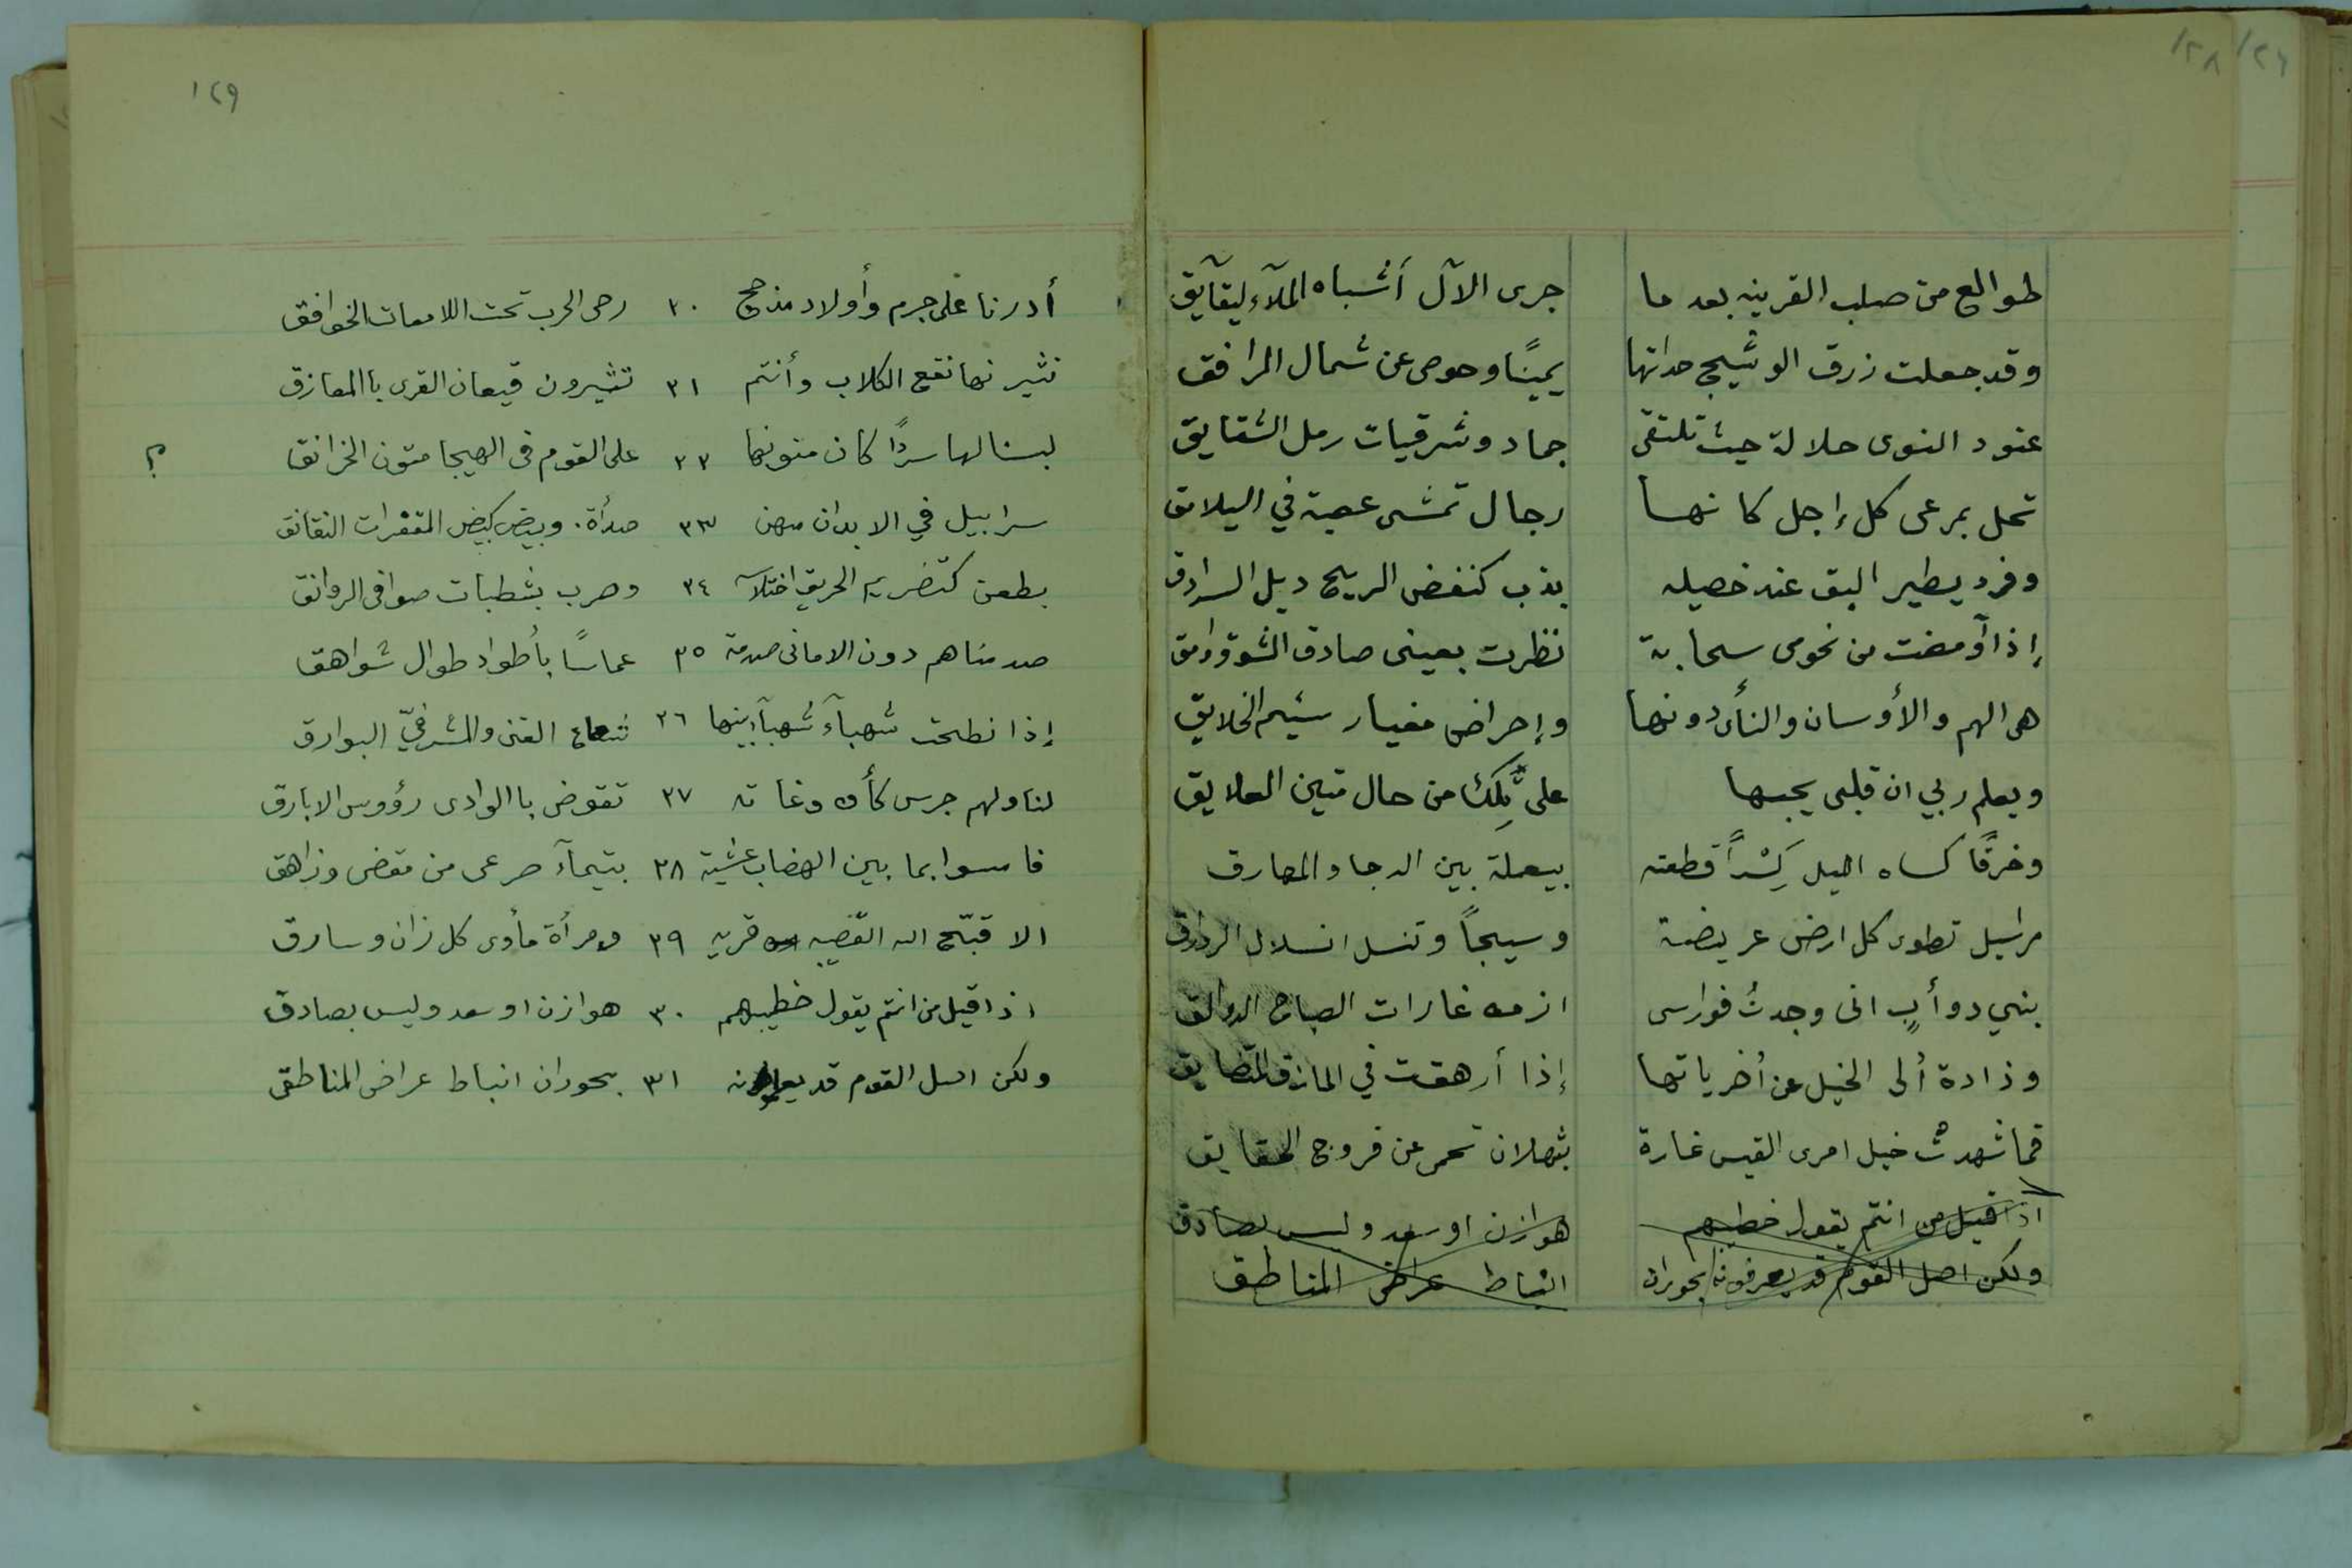 ١٢٨
طوالع من صلب القرينه بعد ما جرى الآل أشباه الملآء ليقآيق
وقد جعلت زرق الوشيج حداتها يمينًا وحوصى عن شمال المرافق
عنود النوى حلالة حيث تلتقى جماد وشرقيات رمل الشقايق
تحل بمرعى كل إجل كانها رجال تمشى عصبة في اليلامق
وفرد يطير البق عند خصيله بذب كنفض الريح ديل السرادق
إذا أومضت من نحومى سحابة نظرت بعينى صادق الشوق وامق
هى الهم والأوسان والنأى دونها وإحراض مغيار سئيم الخلايق
ويعلم ربي ان قلبى يحبها على تلك من حال متين العلايق
وخرقًا كساه اليل كِسْرًا قطعته بيعملة بين الدجا والمهارق
مراسيل تطوى كل ارض عريضة وسيجاً وتنسل انسلال الزوارق
بنيي دوأبٍ انى وجدتُ فوارسى ازمه غارات الصباح الدوالق
وذادة أُلى الخيل عن أُخرياتها إذا أرهقت في المازق المتضايق
فما شهدتْ خيل امرى القيس غارة بثهلان تحمى عن فروج الحقايق
اذا قيل من انتم يقول خطيبهم هوازن او سعد وليس بصادق
ولكن اصل القوم قد يعرفونه بحوران انباط عراض المناطق
١٢٩
أدرنا على جرم وأولاد مذحج ٢٠ رحى الحرب تحت اللامعات الخوافق
نثير نها نقع الكلاب وأنتم ٢١ تثيرون قيعان القرى باالمعازق
لبسنا لها سردًا كان متونها ٢٢ على القوم فى الهيجا متون الخرانق ؟
سرابيل في الابدان منهن ٢٣ صدأة. وبيض كبيض المقفرات النقانق
بطعن كتضريم الحريق اختلاسه ٢٤ وضرب بشطبات صوافى الروانق
صدمناهم دون الامانى صدمة ٢٥ عماسًا بأطواد طوال شواهق
إذا نطحت شهبآء شهبآء بينها ٢٦ شعاع القنى والمشرفيّ البوارق
لنا ولهم جرس كأن وغاته ٢٧ تقوض باالوادى رؤوس الابارق
فامسوا بما بين الهضاب عشية ٢٨ بتيمآء صرعى من مقض وزاهق
الا قبّح اله القصيبه قريه ٢٩ ومرأة مأوى كل زان وسارق
اذا قيل من انتم يقول خطيبهم ٣٠ هوازن او سعد وليس بصادق
ولكن اصل القوم قد ٣١ بحوران انباط عراض المناطق